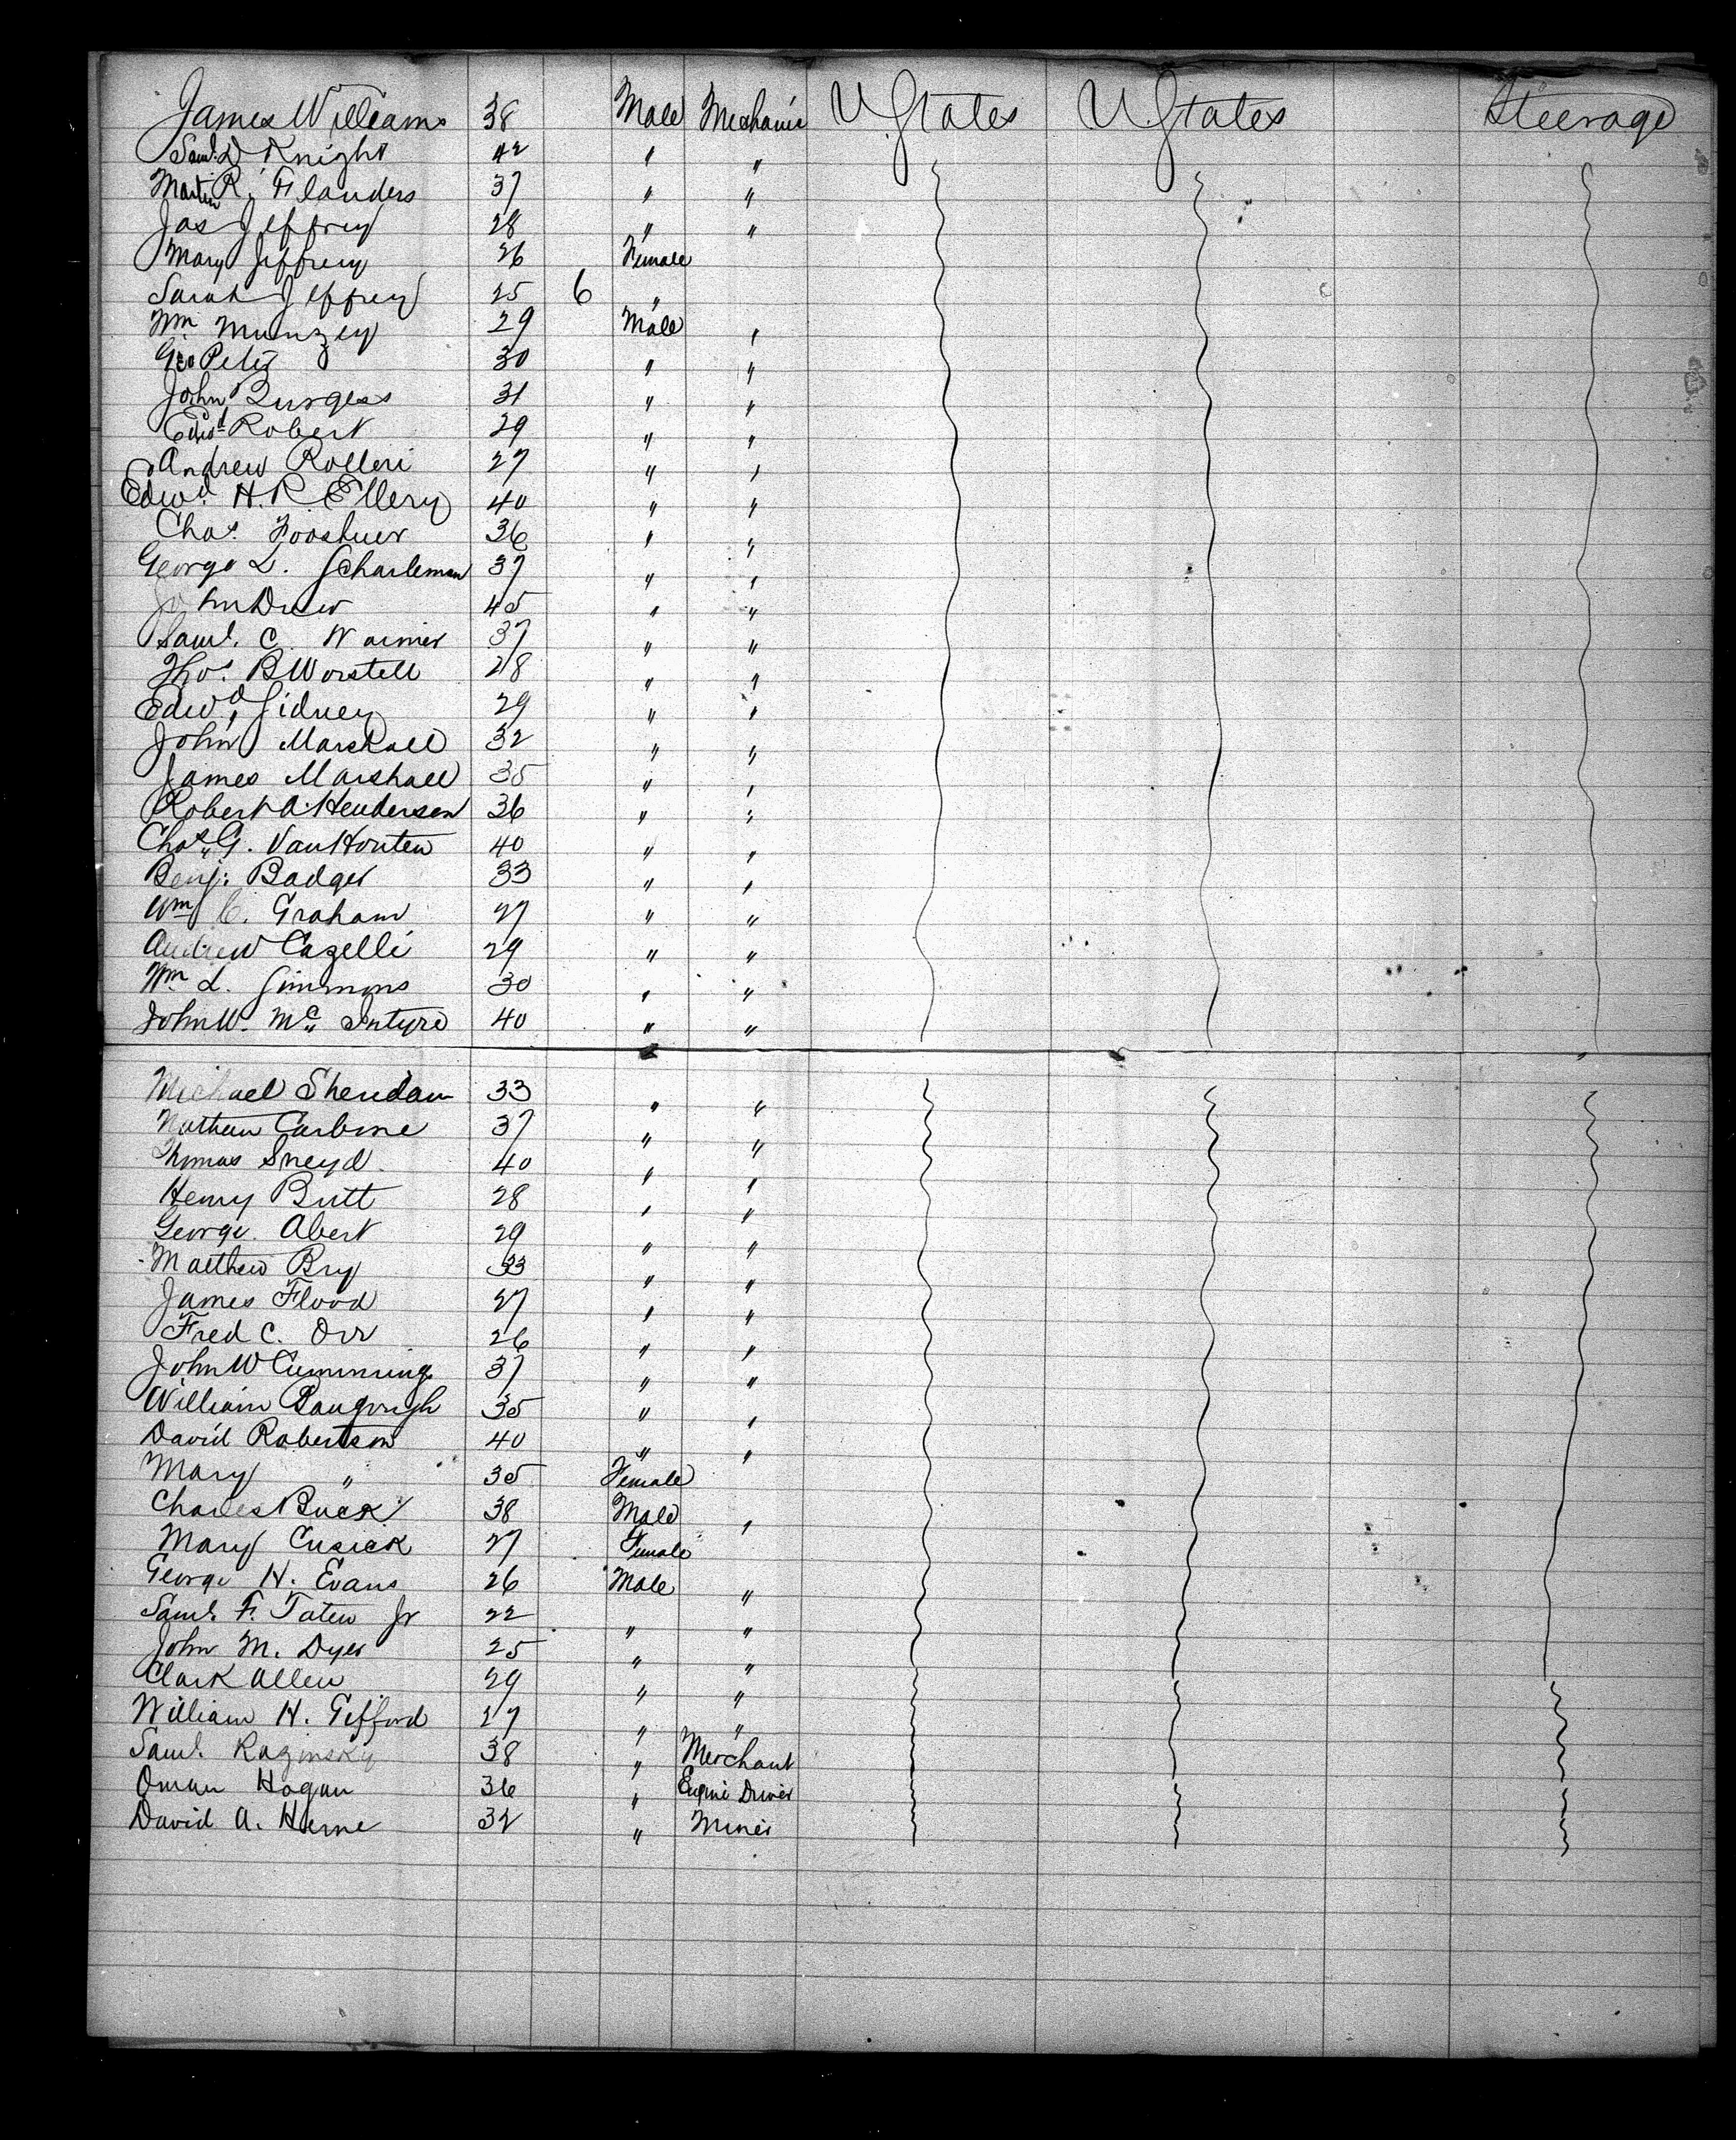 James Williams 38 Male Mechanic U. States U. States Steerage
Saml. D Knight 42 " "
Martin R. Flanders 37 " "
Jas Jeffrey 28 " "
Mary Jeffrey 26 Female
Sarah Jeffrey 25 6 "
Wm Munzey 29 Male "
Geo 30 " "
John Burgess 31 " "
Edwd Robert 29 " "
Andrew Rolleri 27 " "
Edwd. H. R. Ellery 40 " "
Chas. 36 " "
George L. Scharleman 37 " "
John Drew 45 " "
Saml. C. Warner 37 " "
Thos. B Worstell 28 " "
Edwd. Sidney 29 " "
John Marshall 32 " "
James Marshall 35 " "
Robert A. Henderson 36 " "
Chas. G. Van Houten 40 " "
Benj. Badger 33 " "
Wm C. Graham 27 " "
Andrew Cazelli 29 " "
Wm L. Simmons 30 " "
John W. Mc Intyre 40 " "
Michael Sheridan 33 " "
Nathan Carbine 37 " "
Thomas Sneyd 40 " "
Henry Butt 28 " "
George Abert 29 " "
Matthew Bry 33 " "
James Flood 27 " "
Fred C. Orr 26 " "
John W Cumming 37 " "
William 35 " "
David Robertson 40 " "
Mary " 35 Female
Charles Buck 38 Male "
Mary Cusick 27 Female
George H. Evans 26 Male "
Saml. F. Taten Jr 22 " "
John M. Dyer 25 " "
Clark Allen 29 " "
William H. Gifford 27 " "
Saml. Razinsky 38 " Merchant
Oman Hogan 36 " Engine Driver
David A. Herne 32 " Miner